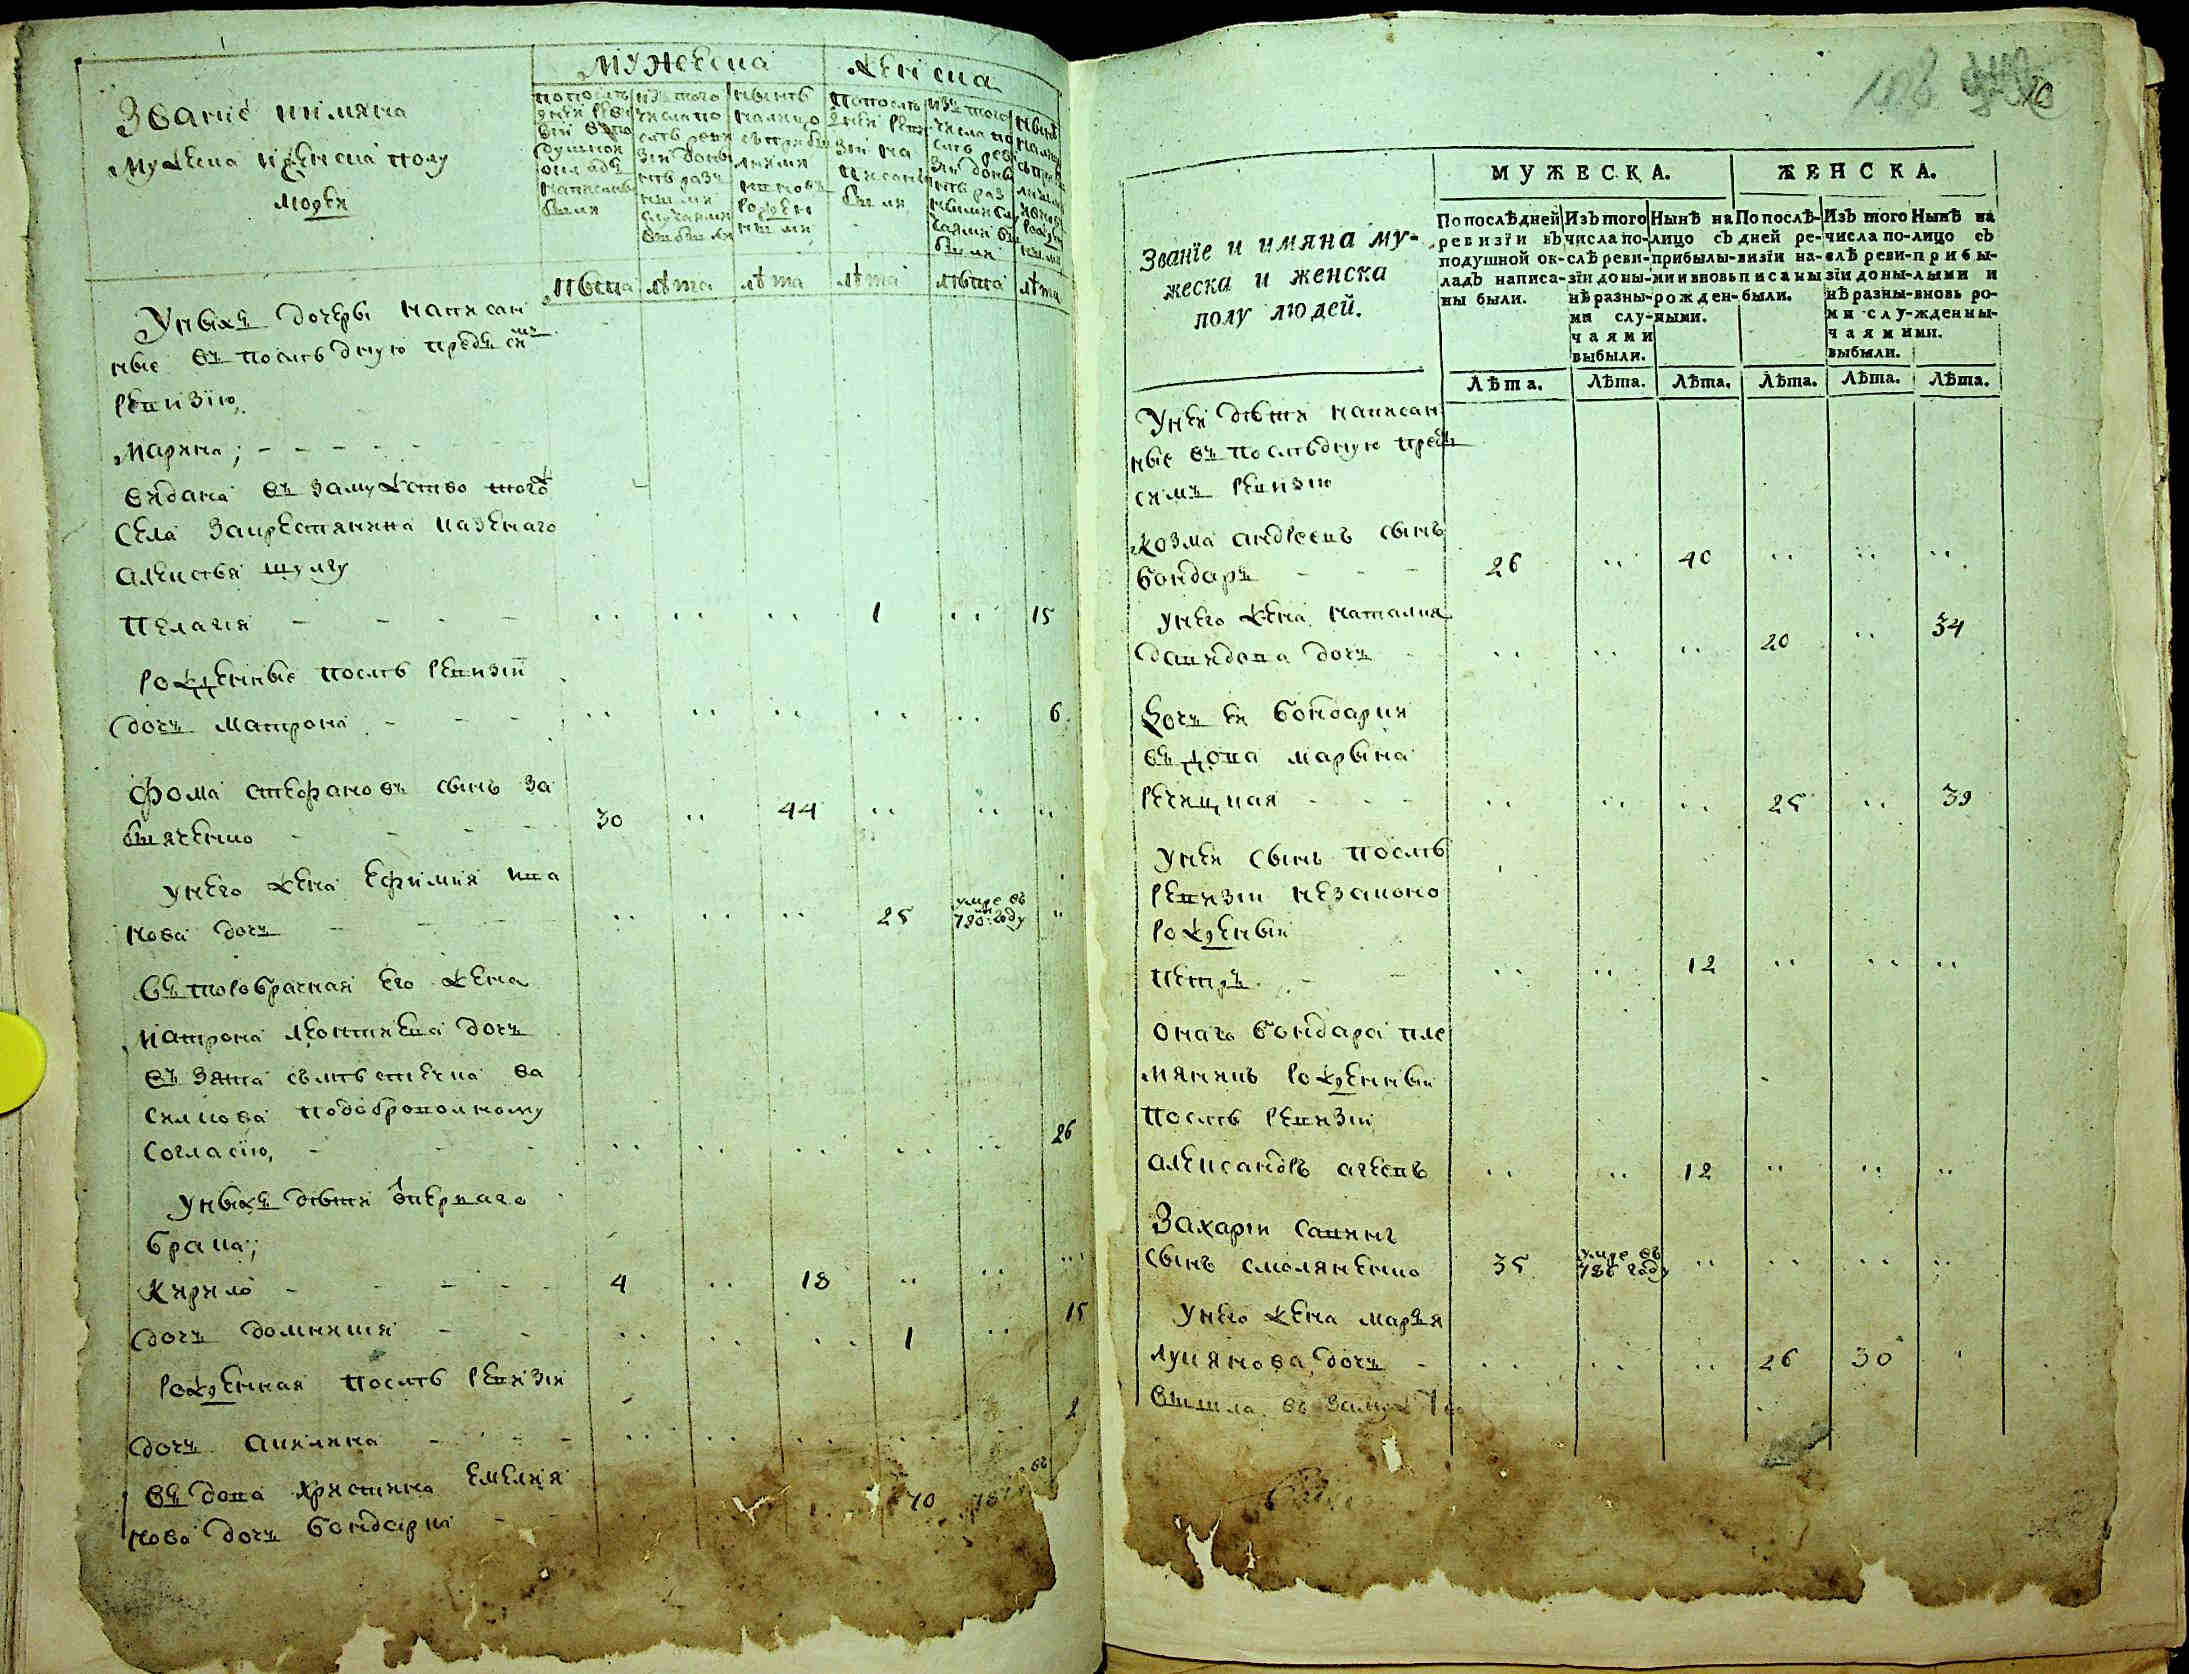 Званіе иимяна
Мужеска иженска полу
людей
Мужеска
Женска
попослѣдней ревизіи въ подушной окладъ написаны были
изъ того числа послѣ ревизіи доныне разными случаями выбыли
нынѣ налицо съ прибылыми и вновь рожденными
попослѣдней ревизіи написаны были
изъ того числа послѣ ревизіи доныне разными случаями выбыли
лѣта лѣта лѣта лѣта лѣта лѣта
Унихъ дочери написан
ные въ последную предъ симъ
ревизію,
Марина;
видана въ замужство тогожъ
села закрестянина казенаго
алексѣя шулгу
Пелагия 1 15
рожденные послѣ ревизіи
дочь матрона 6
Фома стефановъ сынъ За
бияченко 30 44
унего жена ефимия ива
нова дочь 25 умре въ 790м году
въторобрачная его жена
матрона леонтиева дочь
въ зята съмѣстечка ва
силкова подоброволному
согласію, 26
унихъ дѣти отпервого
брака;
Кирило 4 18
дочь домникия 1 15
рожденная послѣ ревизіи
дочь акилина 2
въдова христина емелия
нова дочь бондарка 70
МУЖЕСКА. ЖЕНСКА.
Званїе и имяна му-
жеска и женска
полу людей.
По послѣдней ревизїи въ подушной ок-ладъ написа-ны были.
Изъ того числа по-слѣ реви-зїи доны-нѣ разны-ми слу-чаями выбыли.
Нынѣ на лицо съ прибылы-ми и вновь рожден-ными.
По послѣ-дней ре-визїи на-писаны были.
Изъ того числа по-слѣ реви-зїи доны-нѣ разны-ми слу-чаями выбыли.
Нынѣ на лицо съ прибы-лыми и вновь ро-жденны-ми.
Лѣта. Лѣта. Лѣта. Лѣта. Лѣта. Лѣта.
Унея дѣти написан
ные въ послѣдную предъ
симъ ревизію
Козма андреевъ сынъ
бондарь 26 40
унего жена наталия
давидова дочь 20 34
дочь ея бондария
въдова марьяна
речицкая 25 39
унея сынъ послѣ
ревизіи незаконо
рожденый
Петръ 12
онагъ бондара пле
мяникъ рожденный
послѣ ревизіи
александръ агеевъ 12
Захарій савинъ
сынъ смоляненко 35 умре въ 786 году
унего жена марья
лукянова дочь 26 30
вышла въ замуж